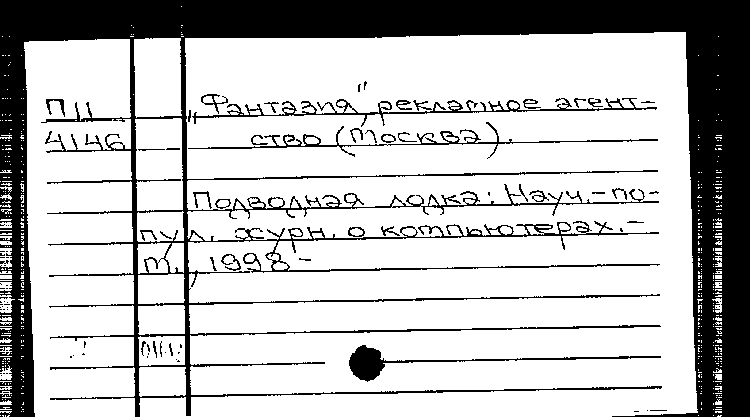 П11 „Фантазия", рекламное агент-
4146 ство (Москва).
Подводная лодка: Науч.-по-
пул. журн. о компьютерах.-
М., 1998-